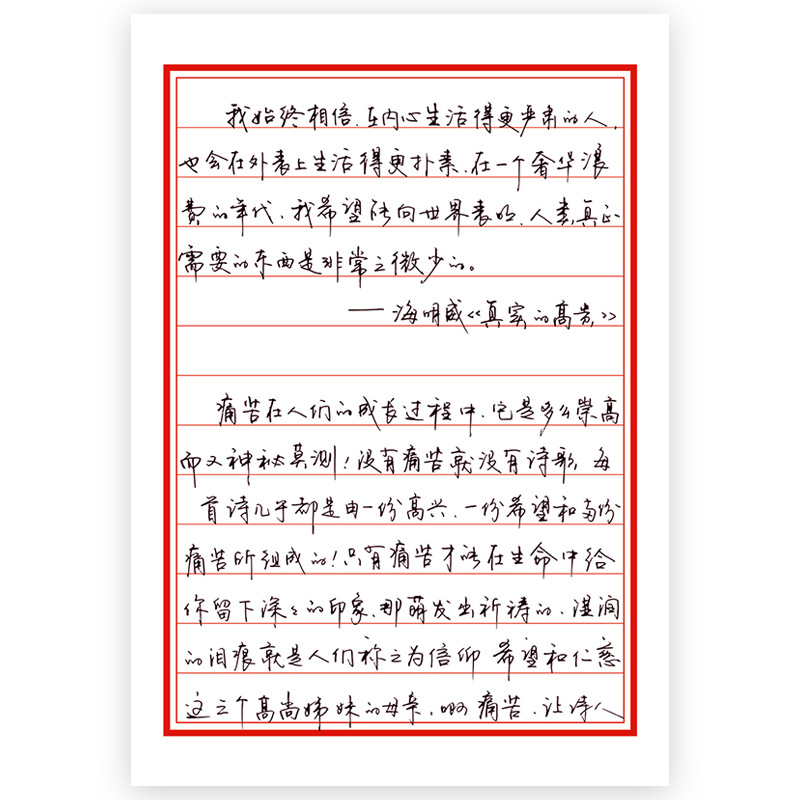 我始终相信、在内心生活得更严肃的人，
也会在外表上生活得更朴素、在一个奢华浪
费的年代、我希望能向世界表明、人类真正
需要的东西是非常之微少的。
——海明威《真实的高贵》
痛苦在人们的成长过程中、它是多么崇高
而又神秘莫测！没有痛苦就没有诗歌，每
首诗几乎都是由一份高兴、一份希望和两份
痛苦所组成的！只有痛苦才能在生命中给
你留下深深的印象、那萌发出祈祷的、湿润
的泪痕就是人们称之为信仰 希望和仁慈
这三个高尚姊妹的母亲、啊 痛苦、让诗人